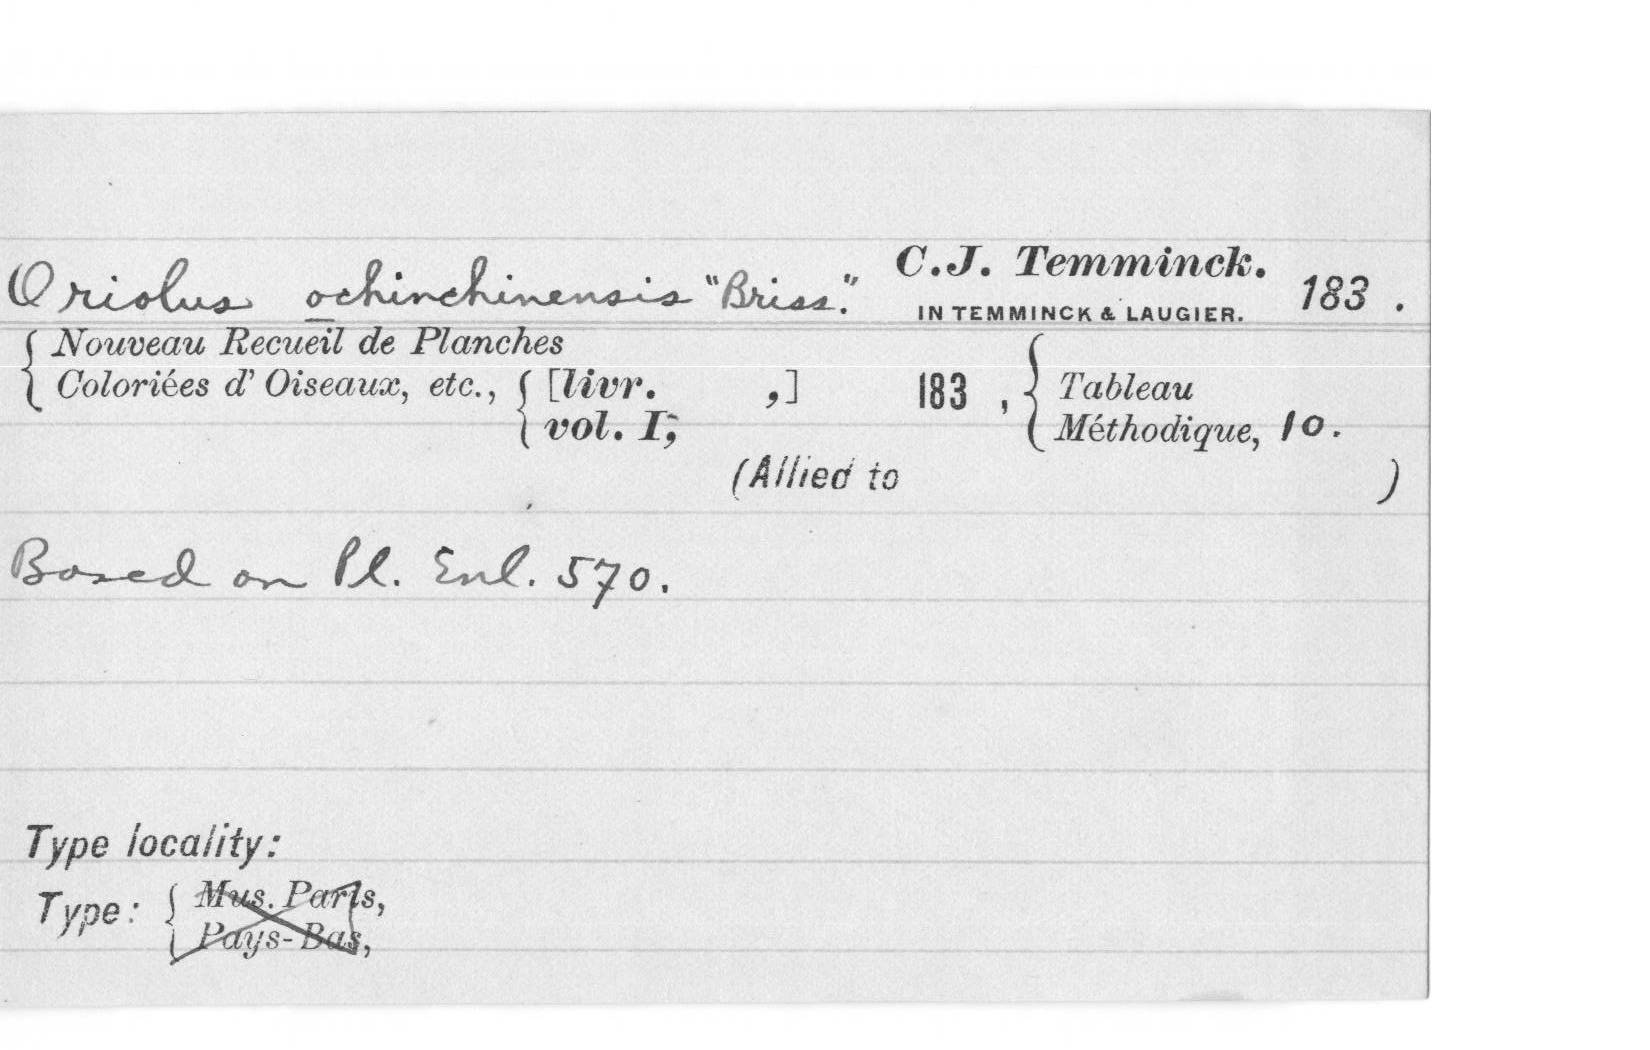 Oriolus ochinchinensis "Briss." C.J. Temminck. 183 .
IN TEMMINCK & LAUGIER.
Nouveau Recueil de Planches
Coloriées d' Oiseaux, etc., [livr. ,] 183 , Tableau
vol. I; Méthodique, 10.
(Allied to )
Based on Pl. Enl. 570.
Type locality:
Type: Mus. Paris,
Pays-Bas,